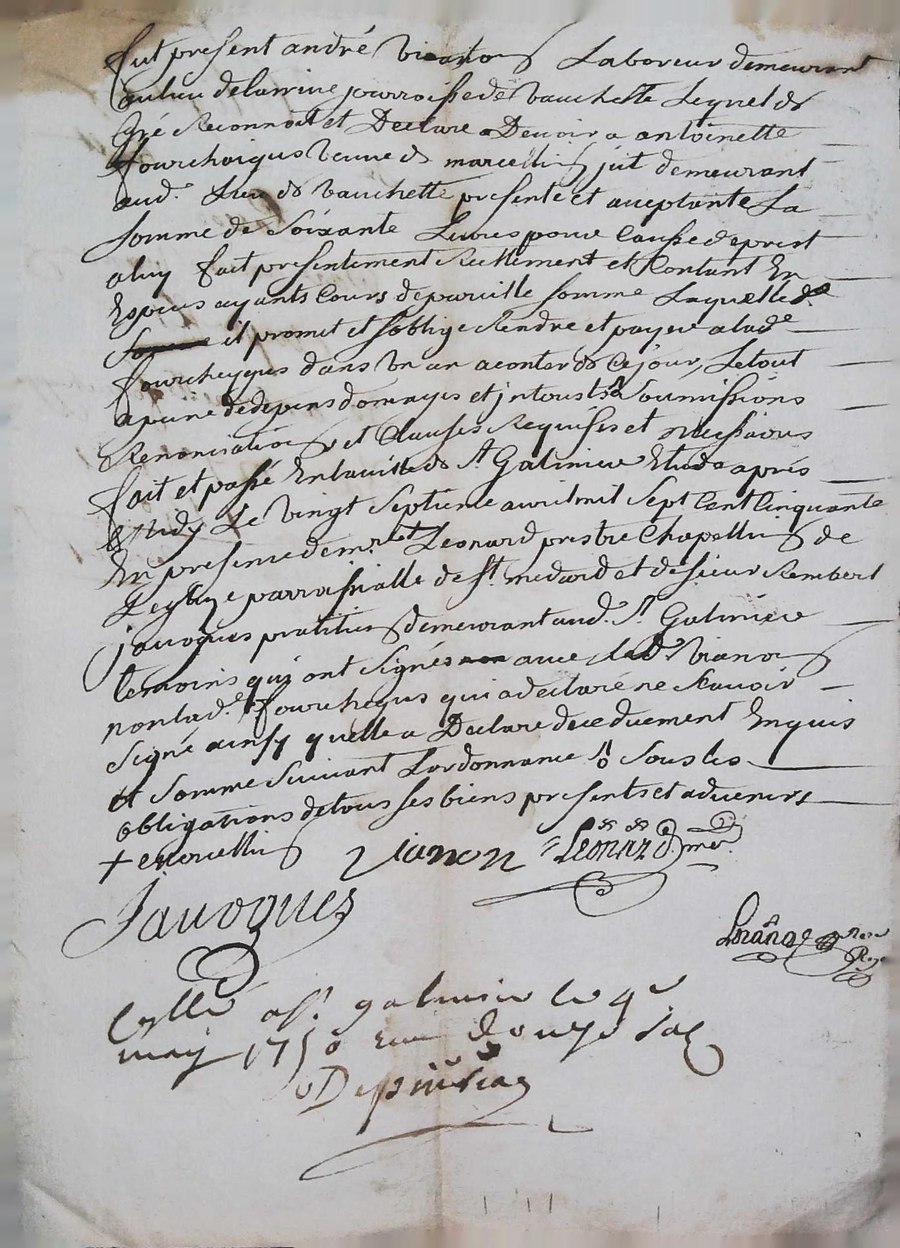 fut present andré vianon Laboreur demeurant
au lieu de larrine parroisse de vauchette Lequel de
gré Reconnoit et Declare Devoir a antoinette
fourcheigus veuve de marcellin jut demeurant
aud.t Lieu de vauchette presente et aceptante La
somme de soixante Livres pour Causse de prest
a luy fait presentement Reellement et Contant En
Especes ayants Cours de pareille somme Laquelle d.e
somme il promet et soblige Rendre et payer a lad.e
fourchegues dans un an a conter de Ce jour, Le tout
a peine de depens domages et jnterests Soumissions
Renonciations et Clauses Requises et necessaires
fait et passé En la ville de St Galmier Etude après
Midy Le vingt Septieme avril mil Sept Cent Cinquante
En presence de m.re Leonard prestre Chapellin de
Leglize parroissialle de St medard et de sieur Rembert
javogues praticien demeurant aud. St Galmier
temoins qui ont signés avec led. vianon
non lad.e fourchegus qui a declaré ne scavoir
signé ainsy quelle a Declare de ce duement Enquis
et Sommé Suivant Lordonnance Sous les
obligations de tous ses biens presents et advenirs
+ marcellin Vianon Leonard
Javogues
a St galmier le 4e
may 1750 Reçu douze sols